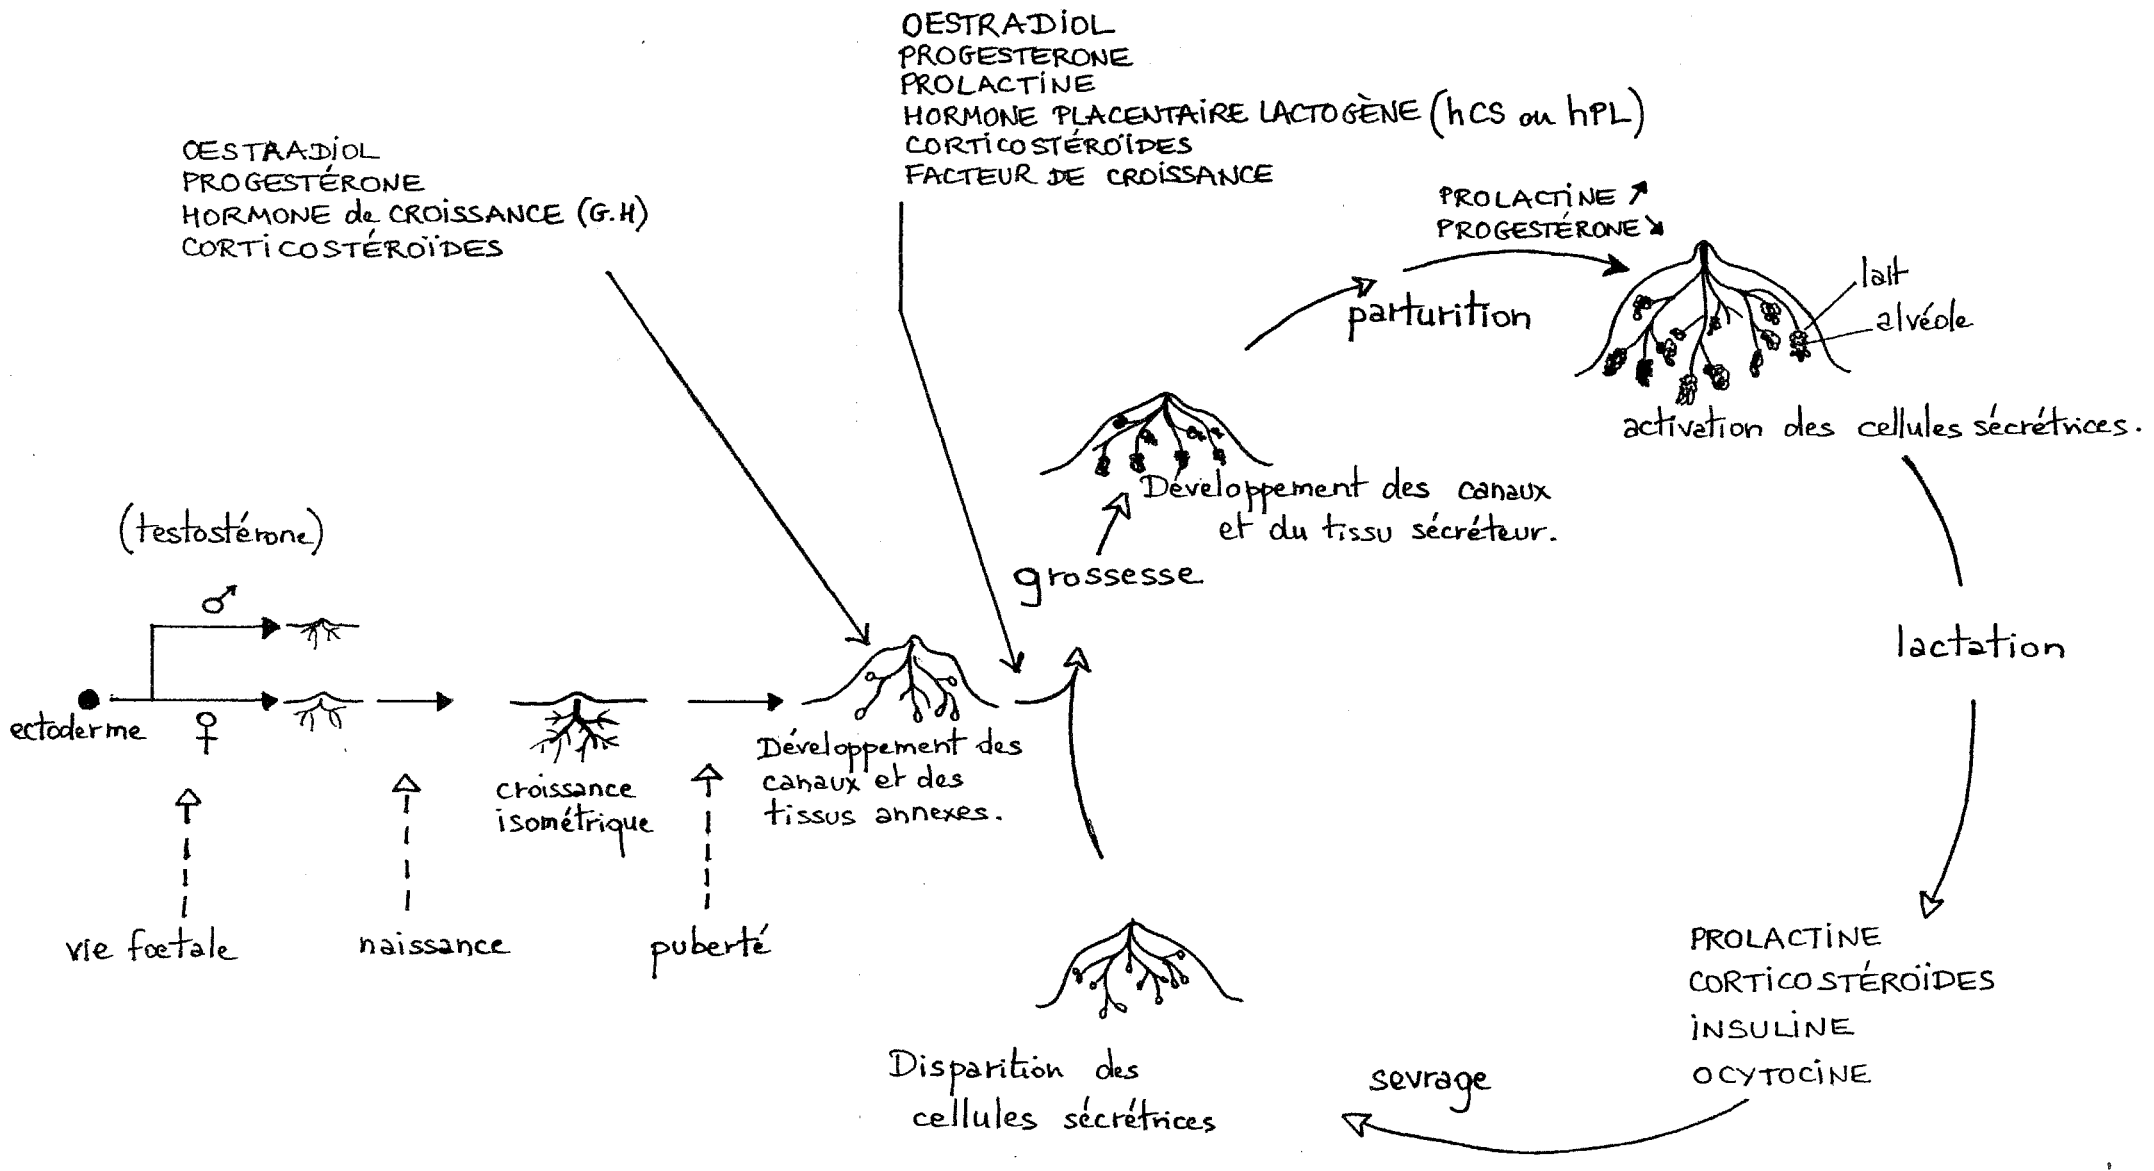 OESTRADIOL
PROGESTERONE
PROLACTINE
HORMONE PLACENTAIRE LACTOGÈNE (hCS ou hPL)
CORTICOSTÉROÏDES
FACTEUR DE CROISSANCE
OESTRADIOL
PROGESTÉRONE
HORMONE de CROISSANCE (G.H)
CORTICOSTÉROÏDES
PROLACTINE ↗
PROGESTÉRONE ↘
lait
alvéole
parturition
activation des cellules sécrétrices.
Développement des canaux
et du tissu sécréteur.
grossesse
(testostérone)
♂
ectoderme
♀
croissance
isométrique
Développement des
canaux et des
tissus annexes.
lactation
vie foetale
naissance
puberté
PROLACTINE
CORTICOSTÉROÏDES
INSULINE
OCYTOCINE
sevrage
Disparition des
cellules sécrétrices